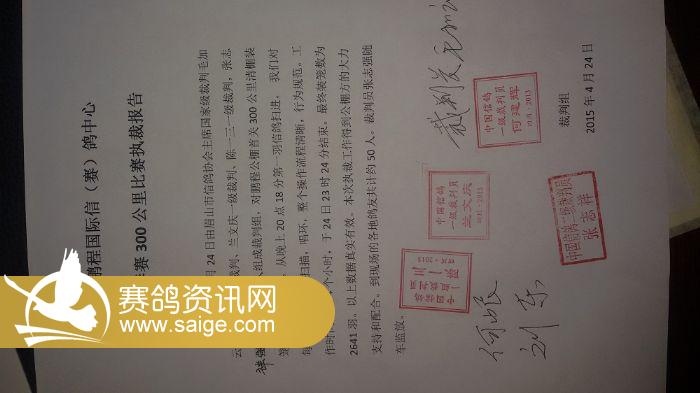 鹏程国际信（赛）鸽中心
赛 300 公里比赛执裁报告
月 24 日由眉山市信鸽协会主席国家级裁判毛加
云
裁判、兰文庆一级裁判、陈一三一级裁判，张志
组成裁判组，对鹏程公棚首关 300 公里清棚装
笼
从晚上 20 点 18 分第一羽信鸽扫进，我们对
每
扫描，唱环，整个操作流程清晰，行为规范。工
作时
个小时，于 24 日 23 时 24 分结束。最终装笼数为
2641 羽。以上数据真实有效。本次执裁工作得到公棚方的大力
支持和配合。到现场的各地鸽友共计约 50 人。裁判员张志强随
车监放。
中国信鸽
一级裁判员
兰文庆
四川·2013
中国信鸽
一级裁判员
何建辉
四川·2013
中国信鸽一级裁判员
张志祥
裁判组
2015 年 4 月 24 日
赛鸽资讯网
www.saige.com